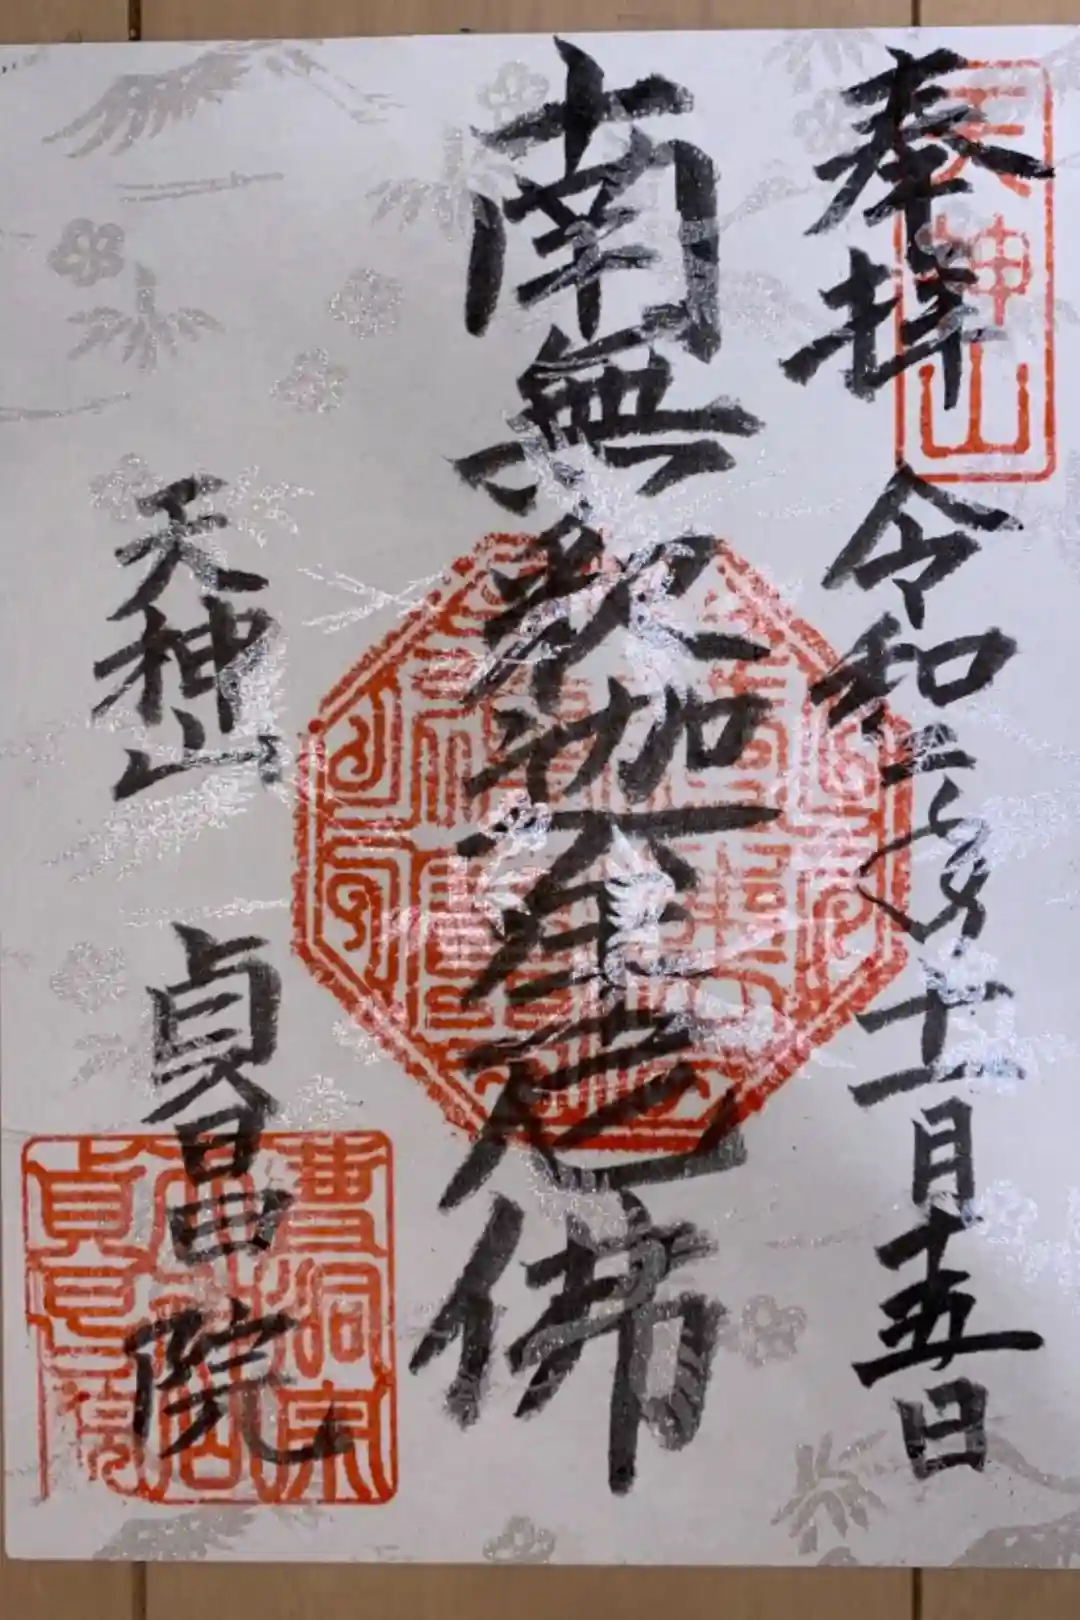 奉拝
令和二年十一月十五日
天神山
南無釈迦牟尼佛
天神山
貞昌院
曹洞宗
天神山
貞昌院